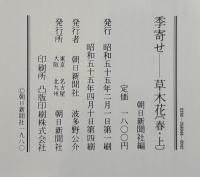 季寄せ──草木花〔春・上〕
朝日新聞社編
定価 一八〇〇円
昭和五十五年二月一日第一刷
昭和五十五年四月十日第四刷
発行者 朝日新聞社 波多野公介
発行所 朝日新聞社
東京 名古屋
大阪 北九州
印刷所 凸版印刷株式会社
©朝日新聞社一九八〇